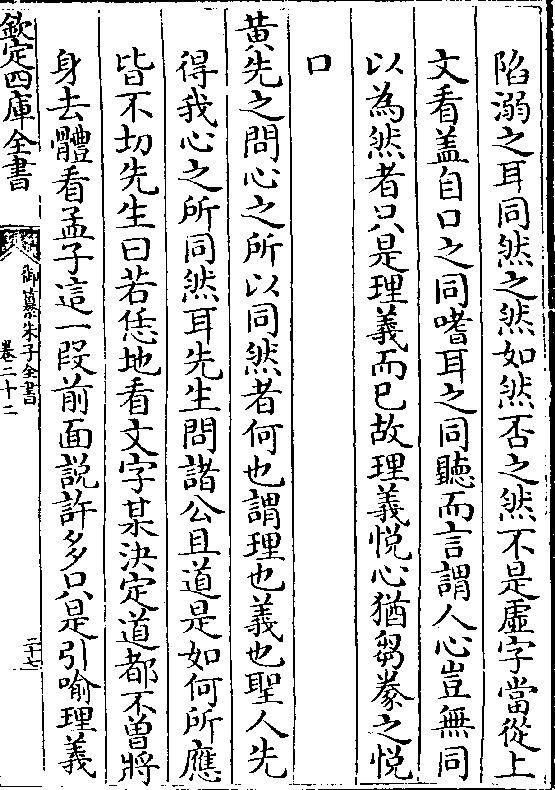 陷溺之耳同然之然如然否之然不是虛字當從上
文看盖自口之同嗜耳之同聽而言謂人心豈無同
以為然者只是理義而已故理義悅心猶芻豢之悅
口
黄先之問心之所以同然者何也謂理也義也聖人先
得我心之所同然耳先生問諸公且道是如何所應
皆不切先生曰若恁地看文字某決定道都不曽將
身去體看孟子這一段前面説許多只是引喻理義
欽定四庫全書
御纂朱子全書
卷二十二
二十七